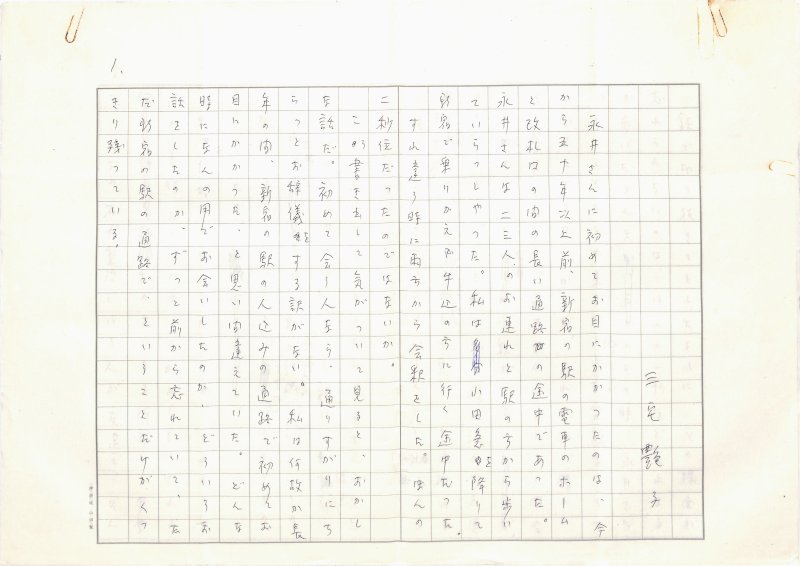 1.
三宅艶子
永井さんに初めてお目にかかったのは、今
から五十年以上前、新宿の駅の電車のホーム
と改札口の間の長い通路の途中であった。
永井さんは二三人のお連れと駅の方から歩い
ていらっしゃった。私は小田急を降りて
新宿で乗りかえて牛込の方に行く途中だった。
すれ違う時に両方から会釈をした。ほんの
二秒位だったのではないか。
こう書き出して気がついて見ると、おかし
な話だ。初めて会う人なら、通りすがりにち
らっとお辞儀をする訳がない。私は何故か長
年の間、新宿の駅の人込みの通路で初めてお
目にかかった、と思い間違えていた。どんな
時になんの用でお会いしたのか、どういうお
話をしたのか、ずっと前から忘れていて、た
だ新宿の駅の通路で、ということだけがくっ
きり残っている。